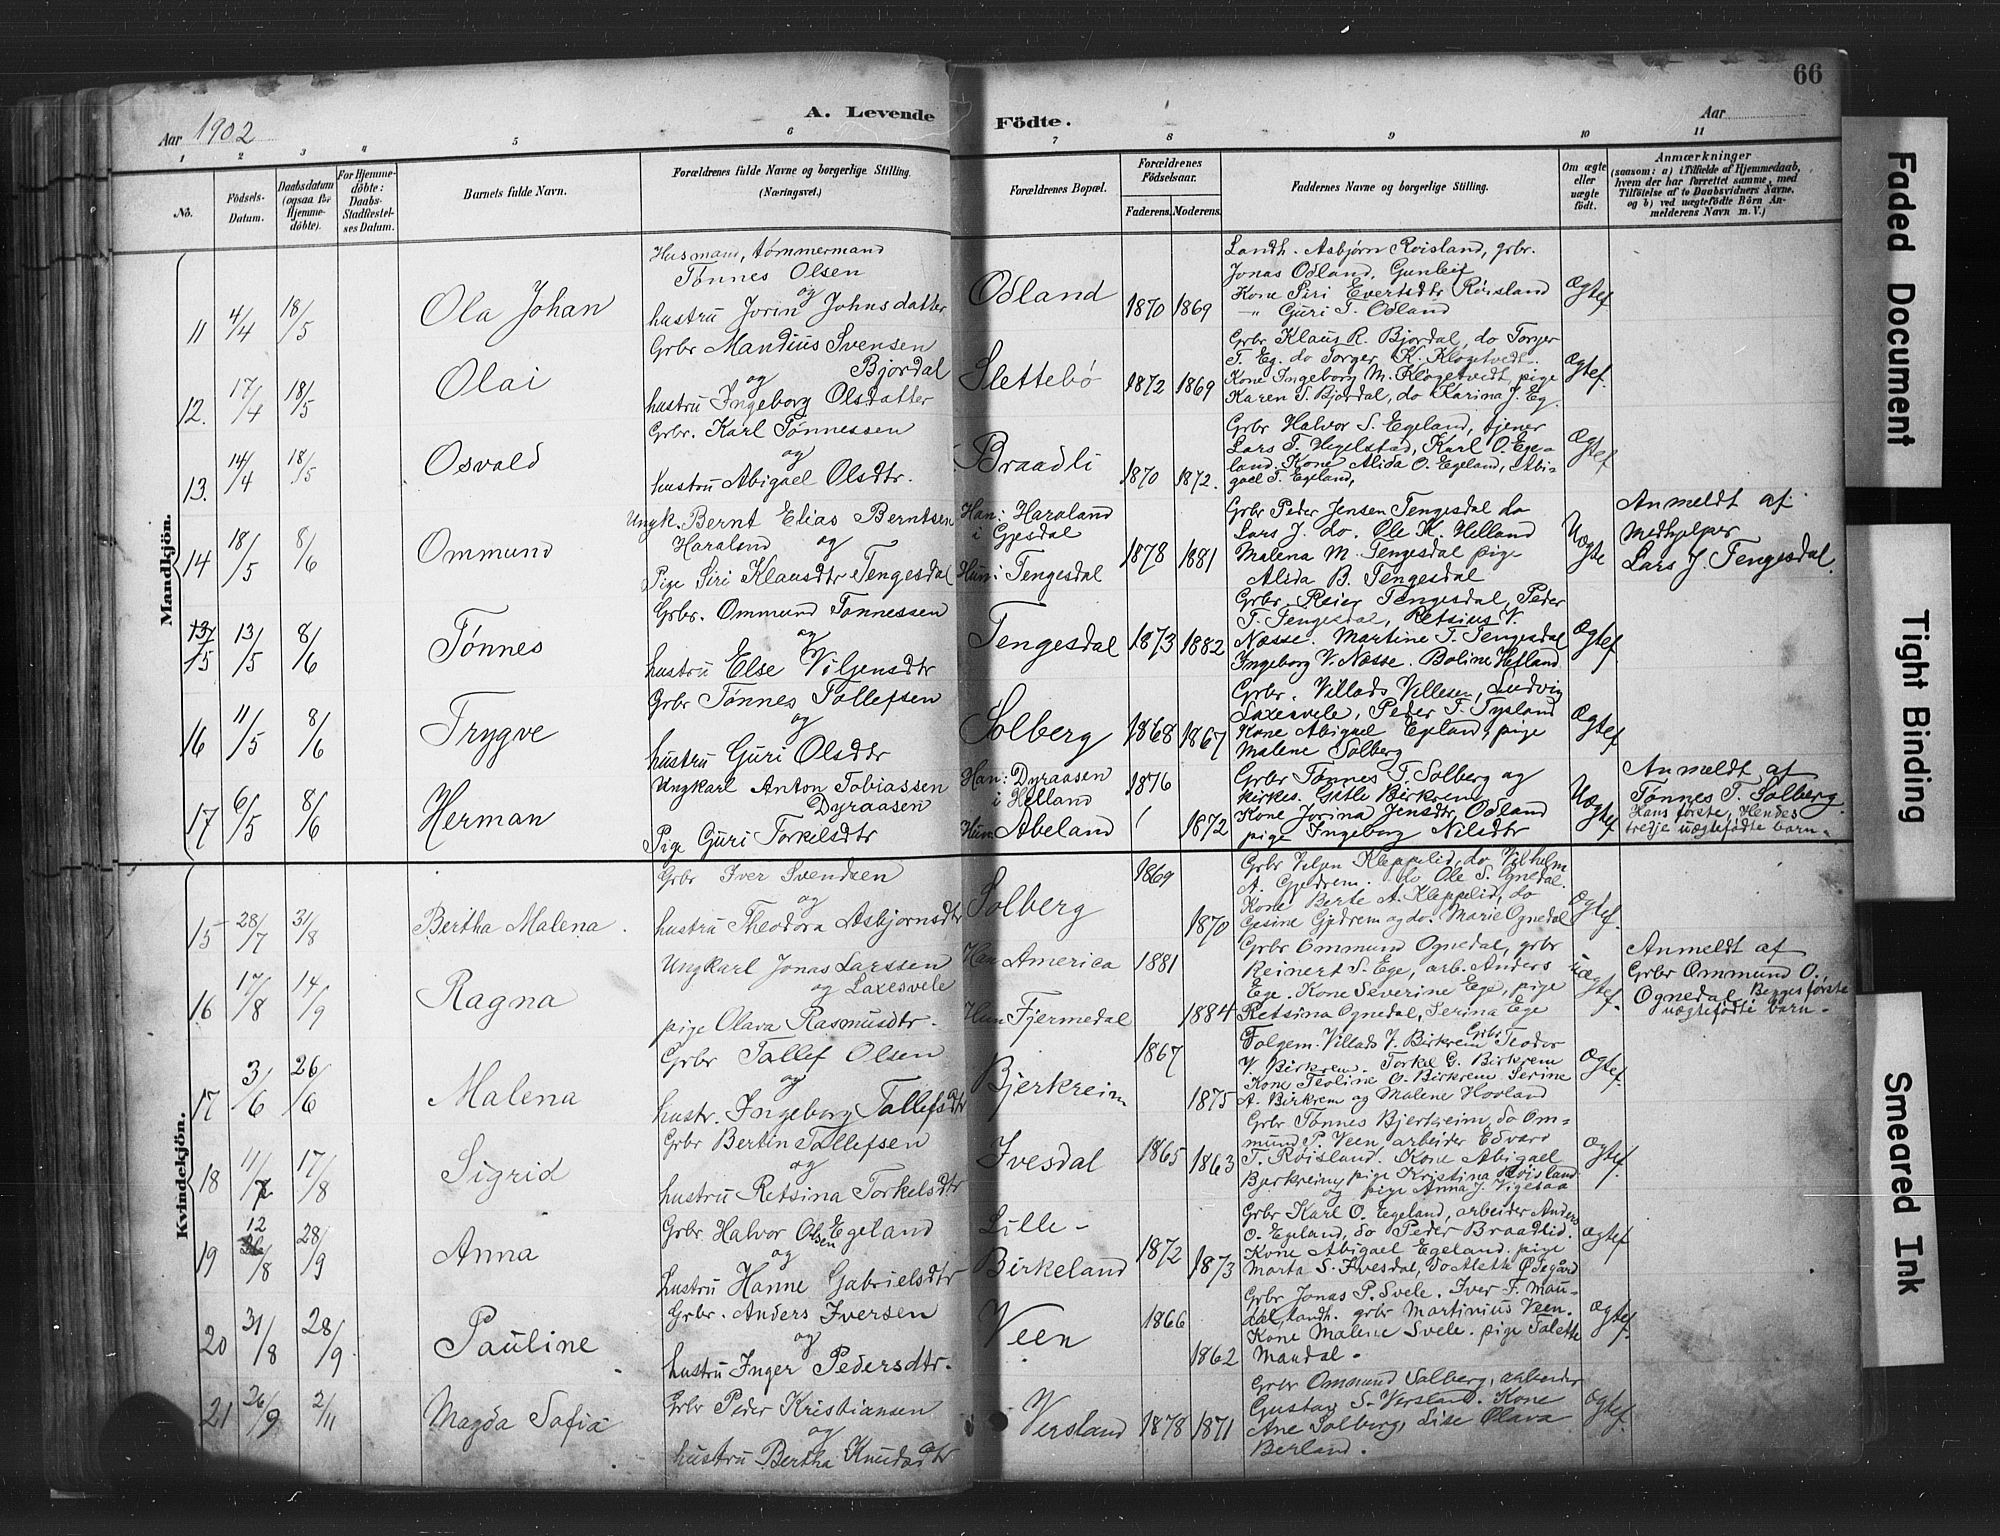 66
Aar 1902
A. Levende Födte.
Aar
1 2 3 4 5 6 7 8 9 10 11
Nō.
Födsels-Datum.
Daabsdatum (ogsaa for Hjemmedöbte).
For Hjemmedöbte: Daabs-Stadfæstelses Datum.
Barnets fulde Navn.
Forældrenes fulde Navne og borgerlige Stilling. (Næringsvei.)
Forældrenes Bopæl.
Forældrenes Födselsaar.
Faderens. Moderens.
Faddernes Navne og borgerlige Stilling.
Om ægte eller uægte födt.
Anmærkninger
(saasom: a) i Tilfælde af Hjemmedaab, hvem der har forrettet samme, med Tilföielse af to Daabsvidners Navne, og b) ved uægtefödte Börn Anmelderens Navn m. V.)
Mandkjön.
11 4/4 18/5 Ola Johan
Husmand, tømmermand
Tønnes Olsen
og
hustru Jorin Johnsdatter
Odland 1870 1869
Landh. Asbjørn Røisland, grbr.
Jonas Odland, Gunleif
Kone Siri Evertsdtr Røisland
-"- Guri T. Odland
Ægtef
12. 17/4 18/5 Olai
Grbr Mandius Svensen
og Bjordal
hustru Ingeborg Olsdatter
Slettebö 1872 1869
Grbr Klaus R. Bjordal, do Torger
T. Eg. do Torger K. Klogetvedt.
Kone Ingeborg M. Klogetvedt, pige
Karen S. Bjordal, do Karina J. Eg.
Ægtef.
13. 14/4 18/5 Osvald
Grbr. Karl Tönnessen
og
hustru Abigael Olsdtr.
Braadli 1870 1872.
Grbr Halvor S. Egeland, tjener
Lars T. Hegelstad, Karl O. Ege-
land. Kone Alida O. Egeland, Abi-
gael T. Egeland,
Ægtef
14 18/5 8/6 Ommund
Ungk. Bernt Elias Berntsen
Haraland og
Pige Siri Klausdtr Tengesdal
Han: Haraland
i Gjesdal
Hun: Tengesdal
1878 1881
Grbr Peder Jensen Tengesdal do
Lars J. do. Ole K. Helland
Malena M. Tengesdal pige
Alida B. Tengesdal
Uægte
Anmeldt af
medhjelper
Lars J. Tengesdal.
15 13/5 8/6 Tønnes
Grbr. Ommund Tønnessen
og
hustru Else Viljensdtr
Tengesdal 1873 1882
Grbr. Reier Tengesdal, Peder
T. Tengesdal, Retsius V.
Næsse. Martine T. Tengesdal
Ingeborg V. Næsse. Boline Helland
Ægtef
16 11/5 8/6 Trygve
Grbr Tønnes Tollefsen
og
hustru Guri Olsdtr
Solberg 1868 1867
Grbr. Villads Villesen, Ludvig
Laxesvele, Peder T. Tysland
Kone Abigael Egeland, pige
Malene Solberg
Ægtef
17 6/5 8/6 Herman
Ungkarl Anton Tobiassen
Dyraasen
Pige Guri Torkelsdtr
Han: Dyraasen
i Helland
Hun Abeland
1876 1872
Grbr Tønnes T. Solberg og
kirkes. Gitle Birkrem
Kone Jorina Jensdtr, Odland
pige Ingeborg Nilsdtr
Uægtef
Anmeldt af
Tønnes T. Solberg.
Hans første, Hendes
tredje uægtefødte barn.
Kvindekjön.
15 28/7 31/8 Bertha Malena.
Grbr Iver Svendsen
og
hustru Theodora Asbjornsdtr
Solberg 1869 1870
Grbr Veljen Kleppelid, do Vilhelm
A. Gjedrem. do Ole S. Ognedal.
Kone Berte A. Kleppelid, do
Gesine Gjedrem og do. Marie Ognedal
Ægtef.
16 17/8 14/9 Ragna
Ungkarl Jonas Larssen
og Laxesvele
pige Olava Rasmusdtr.
Han America
Hun Fjermedal
1881 1884
Grbr Ommund Ognedal, grbr
Reinert S. Ege, arb. Anders
Ege. Kone Severine Ege, pige
Retsina Ognedal, Serina Ege
uægtef.
Anmeldt af
Grbr Ommund O.
Ognedal. Begges første
uægtefödte barn.
17 3/6 26/6 Malena
Grbr Tollef Olsen
og
hustr. Ingeborg Tollefsdtr
Bjerkreim 1867 1875
Folgem. Villads V. Birkrem Grbr Teodor
V. Birkrem. Torkel G. Birkrem
Kone Teoline O. Birkrem Serine
A. Birkrem og Malene Hovland
Ægtef.
18 11/7 17/8 Sigrid
Grbr Bertin Tollefsen
og
hustru Retsina Torkelsdtr
Ivesdal 1865 1863
Grbr. Tønnes Bjerkreim, do Om-
mund P. Veen, arbeider Edvard
T. Røisland. Kone Abigael
Bjerkreim, pige Kristina Røisland
og pige Anna J. Vigesaa
Ægtef.
19 12/8 28/9 Anna
Grbr. Halvor Olsen Egeland
og
hustru Hanne Gabrielsdtr
Lille-
Birkeland 1872 1873
Grbr Karl O. Egeland, arbeider Anders
O. Egeland, do Peder Braadlid.
Kone Abigael Egeland. pige
Marta S. Ivesdal, do Aleth Ødegård
Ægtef
20 31/8 28/9 Pauline
Grbr. Anders Iversen
og
hustru Inger Pedersdtr.
Veen 1866 1862
Grbr Jonas P. Svele. Iver F. Mau-
dal, landh. grbr Martinius Veen.
Kone Malene Svele. pige Talette
Maudal.
Ægtef.
21 26/9 2/11 Magda Sofia
Grbr Peder Kristiansen
og
hustru Bertha Knudsdtr
Versland 1878 1871
Grbr Ommund Solberg, arbeider
Gustav S. Versland. Kone
Ane Solberg, Lise Olava
Berland.
Ægtef.
Faded Document
Tight Binding
Smeared Ink